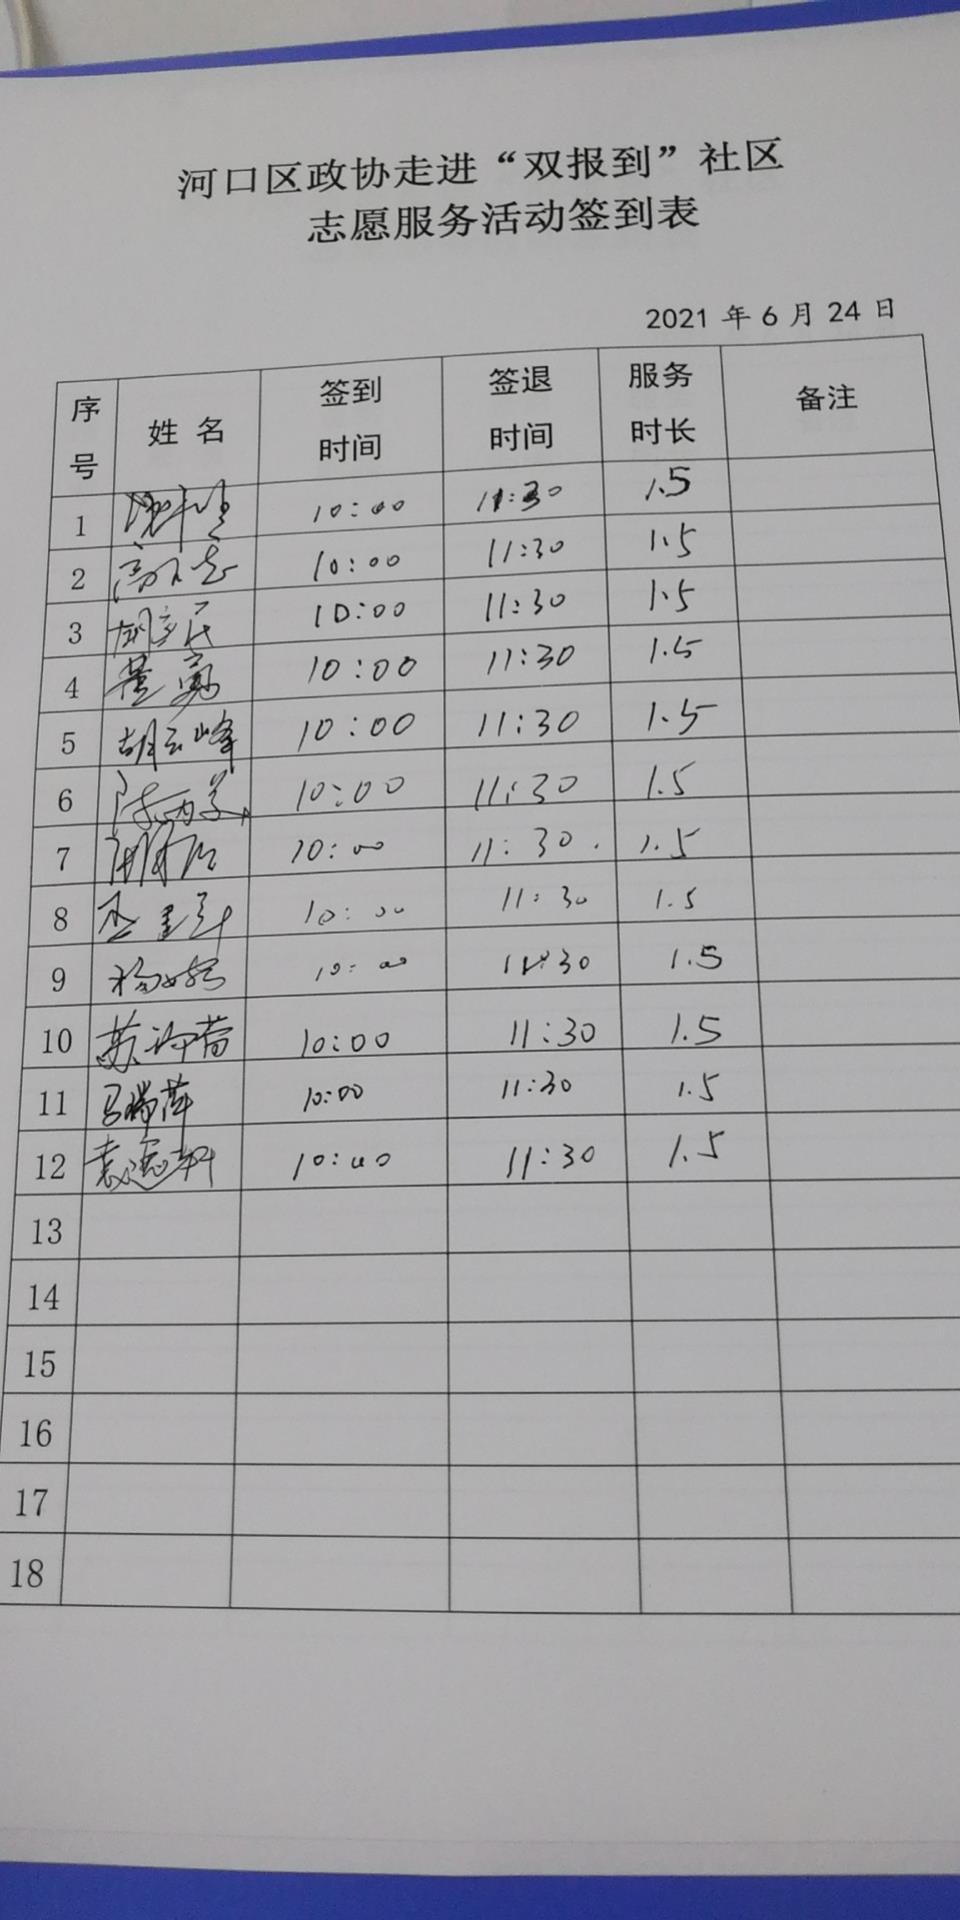 河口区政协走进“双报到”社区
志愿服务活动签到表
2021 年 6 月 24 日
序号 姓 名 签到时间 签退时间 服务时长 备注
1 10:00 11:30 1.5
2 10:00 11:30 1.5
3 10:00 11:30 1.5
4 董勇 10:00 11:30 1.5
5 胡云峰 10:00 11:30 1.5
6 10:00 11:30 1.5
7 10:00 11:30 1.5
8 10:00 11:30 1.5
9 10:00 11:30 1.5
10 10:00 11:30 1.5
11 马瑞萍 10:00 11:30 1.5
12 10:00 11:30 1.5
13
14
15
16
17
18